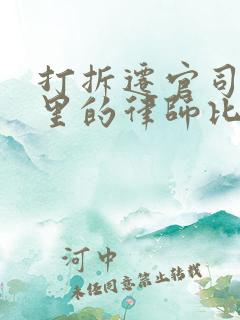 打拆遷官司
里的律師比
河中
未经同意禁止转载